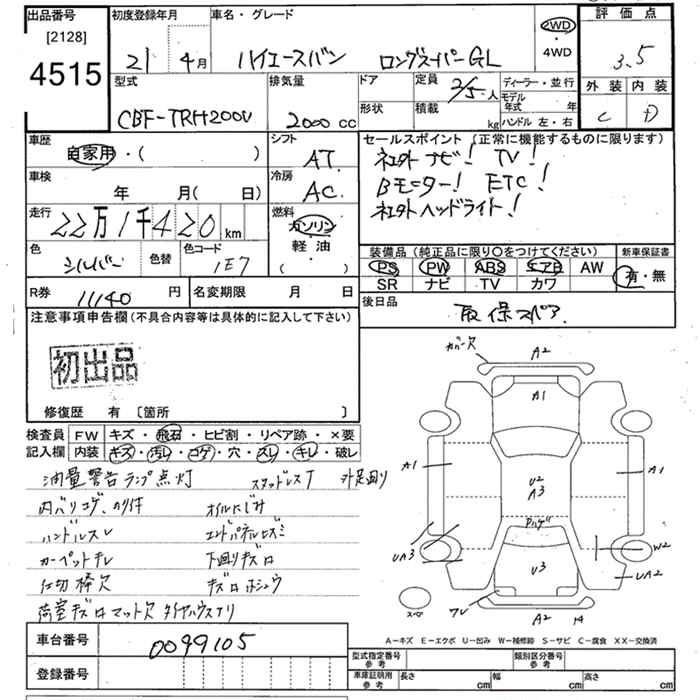 出品番号
[2128]
4515
初度登録年月
21年 4月
車名・グレード
ハイエースバン ロングスーパーGL
2WD
・
4WD
評価点
3.5
外装 内装
C D
型式
CBF-TRH200V
排気量
2000 cc
ドア
形状
定員
2/5人
積載
kg
ディーラー・並行
モデル年式 年
ハンドル 左・右
車歴
自家用・( )
シフト
AT
車検
年 月( 日)
冷房
AC
走行
22万1千420km
燃料
ガソリン
軽油
( ・ )
色
シルバー
色替
色コード
1E7
R券
11140円
名変期限 月 日
セールスポイント(正常に機能するものに限ります)
社外ナビ! TV!
Bモニター! ETC!
社外ヘッドライト!
装備品(純正品に限り○をつけてください)
新車保証書
PS PW ABS エアB AW
SR ナビ TV カワ
有・無
後日品
取保スペア
注意事項申告欄(不具合内容等は具体的に記入して下さい)
初出品
修復歴 有 [箇所 ]
検査員記入欄
FW キズ・飛石・ヒビ割・リペア跡・×要
内装 キズ・汚レ・コゲ・穴・スレ・キレ・破レ
油量警告ランプ点灯 スタッドレスT 外足回り
内バリコゲ、のり付 オイルにじみ
ハンドルスレ エンドパネルヒズミ
カーペットキレ 下廻りキズロ
仕切棒欠 キズロホシュウ
荷室キズロマット欠 タイヤハウスサリ
カバー欠
A2
A1
A1
A1
U2
A3
ハゲ
UA3
W2
U3
UA2
ワレ
A2
14
スペア
A-キズ E-エクボ U-凹み W-補修跡 S-サビ C-腐食 XX-交換済
車台番号
0099105
登録番号
型式指定番号
参考
類別区分番号
参考
車庫証明用
参考
長さ cm
幅 cm
高さ cm